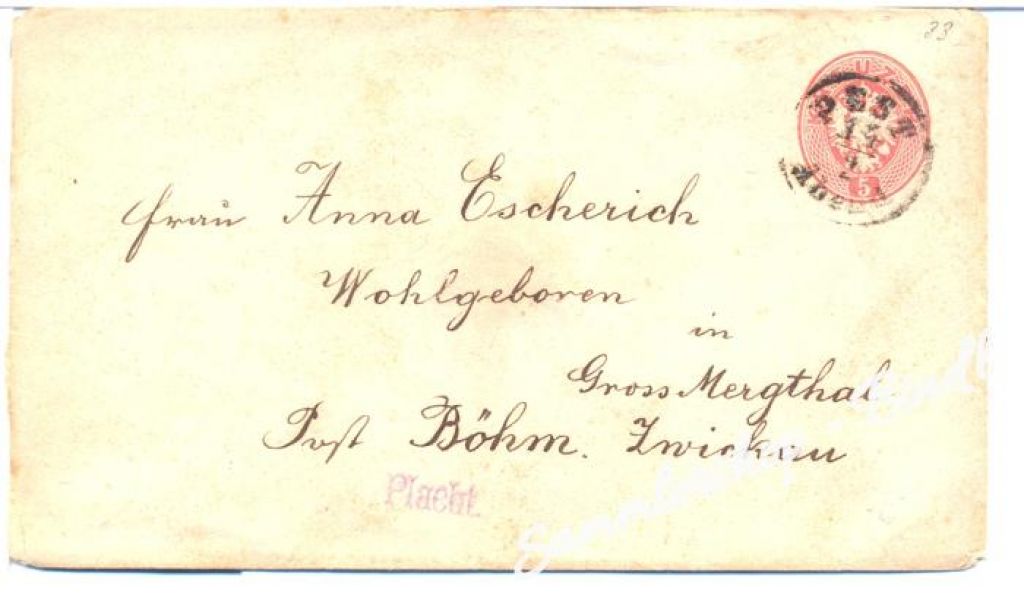 33
PEST
5
Frau Anna Escherich
Wohlgeboren
in
Gross Mergthal
Post Böhm. Zwickau
Placht